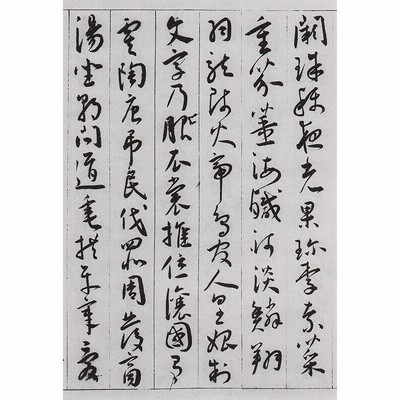 闕珠稱夜光果珍李柰菜
重芥薑海鹹河淡鱗翔
羽龍師火帝鳥官人皇始制
文字乃服衣裳推位讓國有
虞陶唐弔民伐罪周發商
湯坐朝問道垂拱平章愛